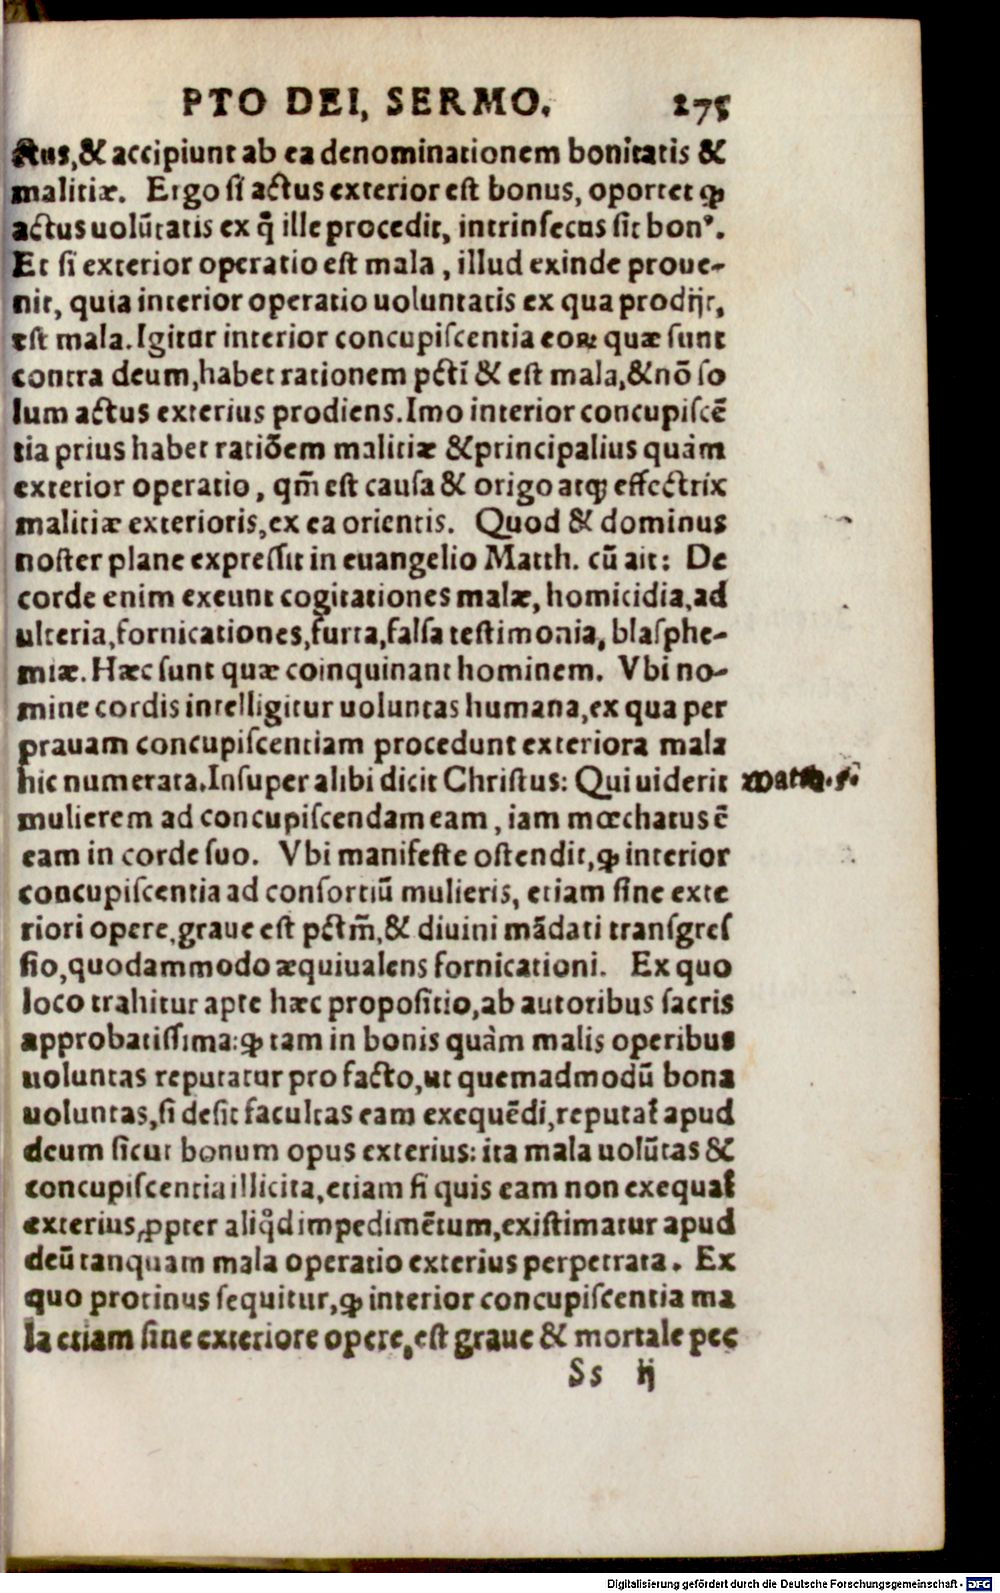 PTO DEI, SERMO. 275
ctus, & accipiunt ab ea denominationem bonitatis &
malitiæ. Ergo si actus exterior est bonus, oportet ꝙ
actus uolũtatis ex q̃ ille procedit, intrinsecus sit bonꝰ.
Et si exterior operatio est mala, illud exinde proue-
nit, quia interior operatio uoluntatis ex qua prodijt,
est mala. Igitur interior concupiscentia eoꝝ quæ sunt
contra deum, habet rationem pctĩ & est mala, & nõ so
lum actus exterius prodiens. Imo interior concupiscẽ
tia prius habet ratiõem malitiæ & principalius quàm
exterior operatio, qm̃ est causa & origo atqꝫ effectrix
malitiæ exterioris, ex ea orientis. Quod & dominus
noster plane expressit in euangelio Matth. cũ ait: De
corde enim exeunt cogitationes malæ, homicidia, ad
ulteria, fornicationes, furta, falsa testimonia, blasphe-
miæ. Hæc sunt quæ coinquinant hominem. Vbi no-
mine cordis intelligitur uoluntas humana, ex qua per
prauam concupiscentiam procedunt exteriora mala
hic numerata. Insuper alibi dicit Christus: Qui uiderit Matth. 5.
mulierem ad concupiscendam eam, iam mœchatus ẽ
eam in corde suo. Vbi manifeste ostendit, ꝙ interior
concupiscentia ad consortiũ mulieris, etiam sine exte
riori opere, graue est pctm̃, & diuini mãdati transgres
sio, quodammodo æquiualens fornicationi. Ex quo
loco trahitur apte hæc propositio, ab autoribus sacris
approbatissima: ꝙ tam in bonis quàm malis operibus
uoluntas reputatur pro facto, ut quemadmodũ bona
uoluntas, si desit facultas eam exequẽdi, reputat᷑ apud
deum sicut bonum opus exterius: ita mala uolũtas &
concupiscentia illicita, etiam si quis eam non exequat᷑
exterius, ꝓpter aliq̇d impedimẽtum, existimatur apud
deũ tanquam mala operatio exterius perpetrata. Ex
quo protinus sequitur, ꝙ interior concupiscentia ma
la etiam sine exteriore opere, est graue & mortale pec
Ss ij
Digitalisierung gefördert durch die Deutsche Forschungsgemeinschaft - DFG